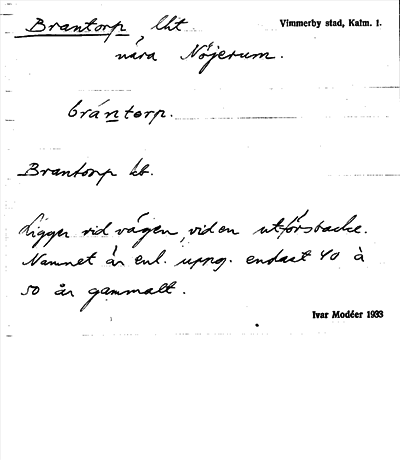 Brantorp, lht
Vimmerby stad, Kalm. l.
nära Nöjerum.
brántorp.
Brantorp kt.
Ligger vid vägen, vid en utförsbacke.
Namnet är enl. uppg. endast 40 à
50 år gammalt.
Ivar Modéer 1933